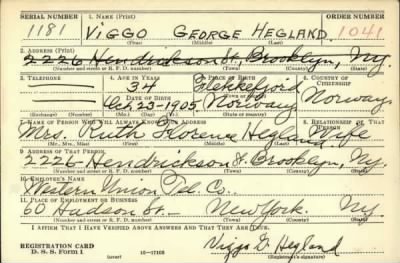 SERIAL NUMBER 1. NAME (Print) ORDER NUMBER
1181 VIGGO GEORGE HEGLAND 1041
(First) (Middle) (Last)
2. ADDRESS (Print)
2226 Hendrickson St, Brooklyn, Ny.
(Number and street or R. F. D. number) (Town) (County) (State)
3. TELEPHONE 4. AGE IN YEARS 5. PLACE OF BIRTH 6. COUNTRY OF CITIZENSHIP
34 Flekkefjord
DATE OF BIRTH Norway
23-1905 Norway
(Exchange) (Number) (Mo.) (Day) (Yr.) (State or country)
7. NAME OF PERSON WHO WILL ALWAYS KNOW YOUR ADDRESS 8. RELATIONSHIP OF THAT PERSON
Mrs. Ruth Florence Hegland Wife
(Mr., Mrs., Miss) (First) (Middle) (Last)
9. ADDRESS OF THAT PERSON
2226 Hendrickson St. Brooklyn, Ny.
(Number and street or R. F. D. number) (Town) (County) (State)
10. EMPLOYER'S NAME
Western Union Tel. Co.
11. PLACE OF EMPLOYMENT OR BUSINESS
60 Hudson St. New York. Ny
(Number and street or R. F. D. number) (Town) (County) (State)
I AFFIRM THAT I HAVE VERIFIED ABOVE ANSWERS AND THAT THEY ARE TRUE.
REGISTRATION CARD Viggo G. Hegland
D. S. S. Form 1 (over) (Registrant's signature)